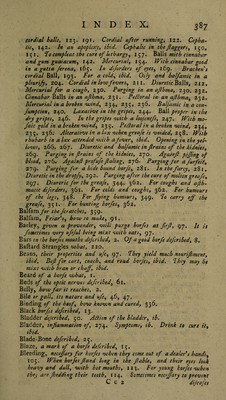 INDEX. 387
cordial balls, 123, 191. Cordial after running, 122. Cepha-
tic, 142. In an apoplexy, ibid. Cephalic in the staggers, 150,
151. To complete the cure of lethargy, 157. Balls with cinnabar
and gum guaiacum, 142. Mercurial, 154. With cinnabar good
in a quinsy, 165. In disorders of eyes, 169. Bracken's
cordial Ball, 193. For a cold, ibid. Oily and balsamic in a
pleurisy, 204. Cordial in slow fevers, 211. Diuretic Balls, 221.
Mercurial for a cough, 230. Purging in an asthma, 230, 232.
Cinnabar Balls in an asthma, 231. Pectoral in an asthma, 232.
Mercurial in a broken wind, 234, 235, 236. Balsamic in a con-
sumption, 240. Laxative in the gripes, 244. Ball proper in the
dry gripes, 246. In the gripes with a looseness, 247. With mo-
saic gold in a broken wind, 235. Pectoral in a broken wind, 234,
235, 236. Alterative in a lax unless grease is voided, 258. With
rhubarb in a lax attended with a fever, ibid. Opening in the yel-
lows, 266, 267. Diuretic and balsamic in strains of the kidneys,
269. Purging in strains of the kidneys, 270. Against pissing of
blood, 276. Against profuse staling, 276. Purging for a surfeit,
279. Purging for a hide bound horse, 281. In the farcy, 281.
Diuretic in the dropsy, 292. Purging after the cure of molten grease,
297. Diuretic for the grease, 344, 362. For coughs and asth-
matic disorders, 361. For colds and coughs, 362. For humours
of the legs, 348. For flying humours, 349. To carry off the
grease, 351. For hunting horses, 362.
Balsam for the scratches, 359.
Balsam, Friar's, how to make, 91.
Barley, given a pretender, will purge horses at first, 97. It is
sometimes very useful being mixt with oats, 97.
Bars in the horses mouths described, 2. Of a good horse described, 8.
Bastard Strangles what, 210.
Beans, their properties and use, 97. They yield much nourishment,
ibid. Best for cart, coach, and road horses, ibid. They may be
mixt with bran or chaff, ibid.
Beard of a horse what, 1.
Beds of the optic nerves described, 61.
Belly, how far it reaches, 2.
Bile or gall, its nature and use, 46, 47.
Binding of the hoof, how known and cured, 336.
Black horses described, 13.
Bladder described, 50. Action of the bladder, ib.
Bladder, inflammation of, 274. Symptoms, ib. Drink to cure it,
ibid.
Blade-Bone described, 25.
Blaze, a mark of a horse described, 15.
Bleeding, necessary for horses when they come out of a dealer's hands,
105. When horses stand long in the stable, and their eyes look
heavy and dull, with hot mouths, 115. For young horses when
they are shedding their teeth, 114. Sometimes necessary to prevent
C c 2 diseases